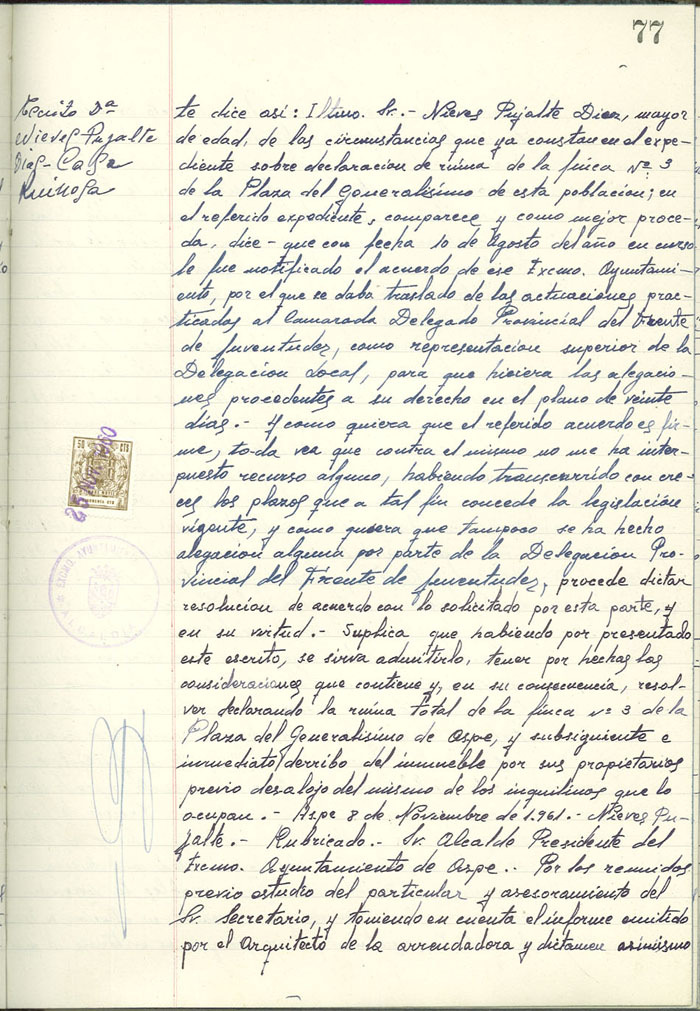 77
Escrito Dª
Nieves Pujalte
Diez - Casa
Ruinosa
te dice así: Iltmo. Sr. - Nieves Pujalte Diez, mayor
de edad, de las circunstancias que ya constan en el expe-
diente sobre declaracion de ruina de la finca Nº 3
de la Plaza del Generalísimo de esta población; en
el referido expediente, comparece y como mejor proce-
da, dice - que con fecha 10 de Agosto del año en curso
le fue notificado el acuerdo de ese Excmo. Ayuntami-
ento, por el que se daba traslado de las actuaciones prac-
ticadas al Camarada Delegado Provincial del Frente
de Juventudes, como representacion superior de la
Delegacion Local, para que hiciera las alegacio-
nes procedentes a su derecho en el plazo de veinte
dias. - Y como quiera que el referido acuerdo es fir-
me, to-da vez que contra el mismo no me ha inter-
puesto recurso alguno, habiendo transcurrido con cre-
ces los plazos que a tal fin concede la legislación
vigente, y como quiera que tampoco se ha hecho
alegacion alguna por parte de la Delegacion Pro-
vincial del Frente de Juventudes, procede dictar
resolucion de acuerdo con lo solicitado por esta parte, y
en su virtud. - Suplica que habiendo por presentado
este escrito, se sirva admitirlo, tener por hechas las
consideraciones que contiene y, en su consecuencia, resol-
ver declarando la ruina total de la finca nº 3 de la
Plaza del Generalisimo de Aspe, y subsiguiente e
inmediato derribo del inmueble por sus propietarios
previo desalojo del mismo de los inquilinos que lo
ocupan. - Aspe 8 de Noviembre de 1.961. - Nieves Pu-
jalte. - Rubricado. - Sr. Alcalde Presidente del
Excmo. Ayuntamiento de Aspe. - Por los reunidos
previo estudio del particular y asesoramiento del
Sr. Secretario, y teniendo en cuenta el informe emitido
por el Arquitecto de la arrendadora y dictamen asimismo
50 CTS
25 NOV 1960
EXCMO. AYUNTAMIENTO